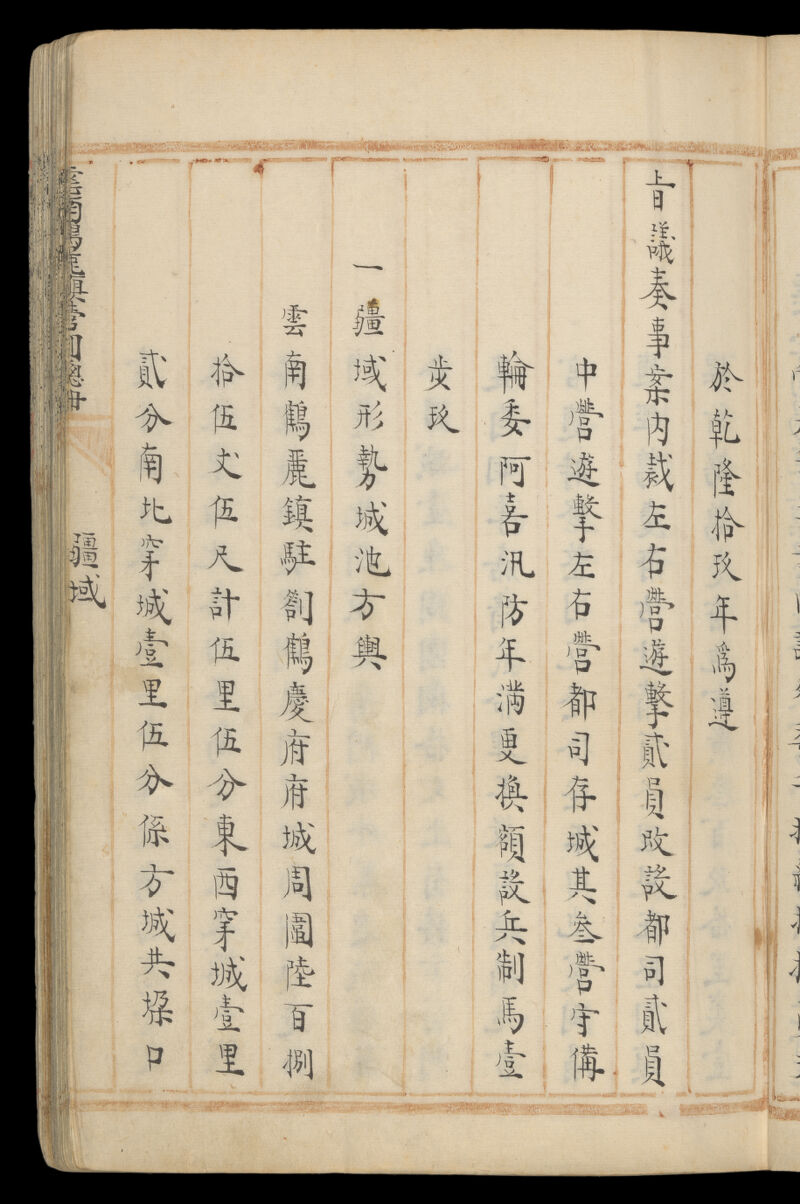 於乾隆拾玖年爲遵
旨議奏事案內裁左右營遊擊貳員改設都司貳員
中營遊擊左右營都司存城其叁營守備
輪委阿喜汛防年滿更換額設兵制馬壹
步玖
一疆域形勢城池方輿
雲南鶴麗鎮駐劄鶴慶府府城周圍陸百捌
拾伍丈伍尺計伍里伍分東西穿城壹里
貳分南北穿城壹里伍分係方城共垛口
雲南鶴麗鎮營制總冊
疆域